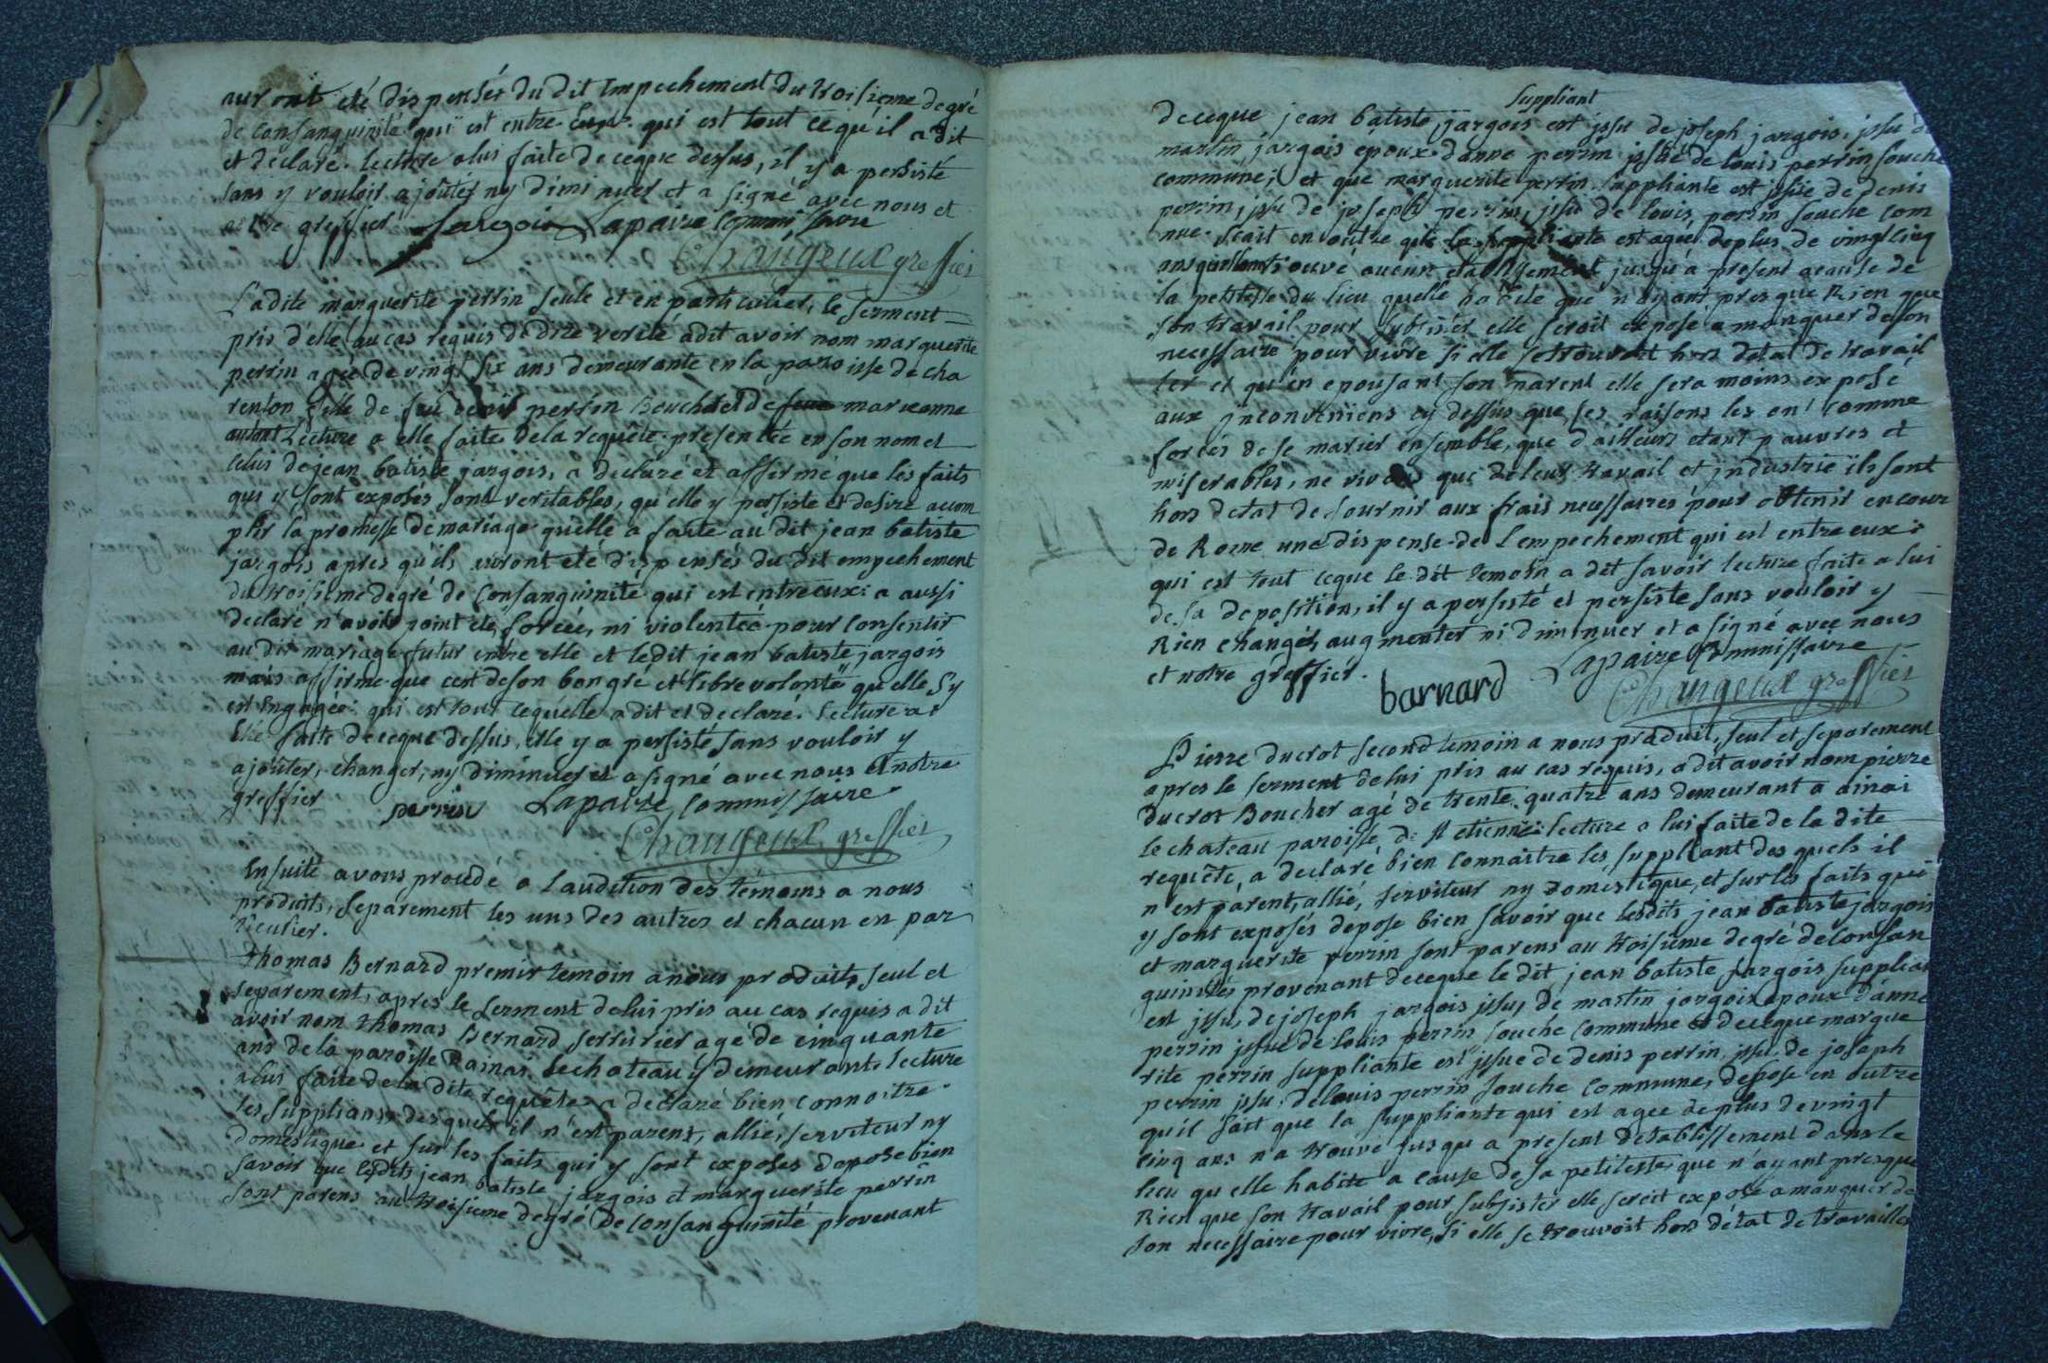 auront eté dispensés du dit Impechement du troisieme degré
de Consanguinité qui est entre eux. qui est tout ce qu'il a dit
et declaré. lecture a lui faite de ceque dessus, il y a persisté
sans y vouloir ajouter ny diminuer et a signé avec nous et
notre greffier Jargois Lapaire Commissaire
Changeux greffier
Ladite marguerite perrin seule et en particulier, le serment
pris d'elle au cas requis de dire verité a dit avoir nom marguerite
perrin agée de vingt six ans demeurante en la paroisse de cha
renton fille de feu denis perrin et de marianne
lecture a elle faite de la requête presentée en son nom et
celui de jean batiste jargois, a declaré et affermé que les faits
qui y sont exposés sont veritables, qu'elle y persiste et desire accom
plir la promesse de mariage quelle a faite au dit jean batiste
jargois apres qu'ils auront eté dispensés du dit empechement
du troisieme degré de Consanguinité qui est entre eux: a aussi
declaré n'avoir point eté forcée, ni violentée pour consentir
au dit mariage futur entre elle et ledit jean batiste jargois
mais affirme que cest de son bon gré et libre volonté qu'elle s'y
est engagée: qui est tout cequelle a dit et declaré. lecture a
elle faite de ceque dessus, elle y a persisté sans vouloir y
ajouter, changer, ny diminuer et a signé avec nous et notre
greffier perrin Lapaire Commissaire
Changeux greffier
Ensuite avons procedé a laudition des témoins a nous
produits, separement les uns des autres et chacun en par
ticulier.
Thomas Bernard premier temoin a nous produit, seul et
separement, apres le serment de lui pris au cas requis a dit
avoir nom thomas Bernard serrurier agé de cinquante
ans de la paroisse Dainai le chateau y demeurant. lecture
a lui faite de la dite requête a declaré bien connoitre
les supplians desquels il n'est parent, allié, serviteur ny
domestique et sur les faits qui y sont exposes depose bien
savoir que lesdits jean batiste jargois et marguerite perrin
sont parens au troisieme degré de consanguinité provenant
suppliant
de ceque jean batiste jargois est issu de joseph jargois, issu de
martin jargois epoux d'anne perrin issüe de louis perrin souche
commune; et que marguerite perrin suppliante est issüe de denis
perrin, issu de joseph perrin, issu de louis perrin souche com
mune. scait en outre que la suppliante est agée de plus de vingt cinq
ans trouvé aucun etablissement jusqu'a present acause de
la petitesse du lieu quelle habite que n'ayant presque Rien que
son travail pour subsister elle seroit exposé a manquer de son
necessaire pour vivre si elle se trouvoit hors detat de travail
ler et qu'en epousant son parent elle sera moins exposé
aux jnconveniens cy dessus que ses raisons les on comme
forcés de se marier ensemble, que d'ailleurs etant pauvres et
miserables, ne vivans que de leur travail et jndustrie ils sont
hors detat de fournir aux frais necessaires pour obtenir en cour
de Rome une dispense de Lempechement qui est entre eux:
qui est tout ceque le dit temoin a dit savoir lecture faite a lui
de sa deposition, il y a persisté et persiste sans vouloir y
Rien changer, augmenter ni diminuer et a signé avec nous
et notre greffier. barnard Lapaire Commissaire
Changeux greffier
Pierre ducrot second temoin a nous produit, seul et separement
apres le serment de lui pris au cas requis, a dit avoir nom pierre
ducrot Boucher agé de trente quatre ans demeurant a ainai
le chateau paroisse de st etienne: lecture a lui faite de la dite
requête, a declaré bien connaitre les suppliant des quels il
n'est parent, allié, serviteur ny domestique, et sur les faits qui
y sont exposés depose bien savoir que lesdits jean batiste jargois
et marguerite perrin sont parens au troisieme degré de consan
guinités provenant deceque le dit jean batiste jargois suppliant
est issu, de joseph jargois issu, de martin jargois epoux d'anne
perrin issüe de louis perrin souche commune et deceque margue
rite perrin suppliante est issue de denis perrin, issu, de joseph
perrin issu, de louis perrin souche commune, depose en outre
quil sait que la suppliante qui est agée de plus de vingt
cinq ans n'a trouvé jusqu'a present detablissement dans le
lieu qu'elle habite a cause de sa petitesse, que n'ayant presque
Rien que son travail pour subsister elle seroit exposé a manquer de
son necessaire pour vivre, si elle se trouvoit hors detat de travailler